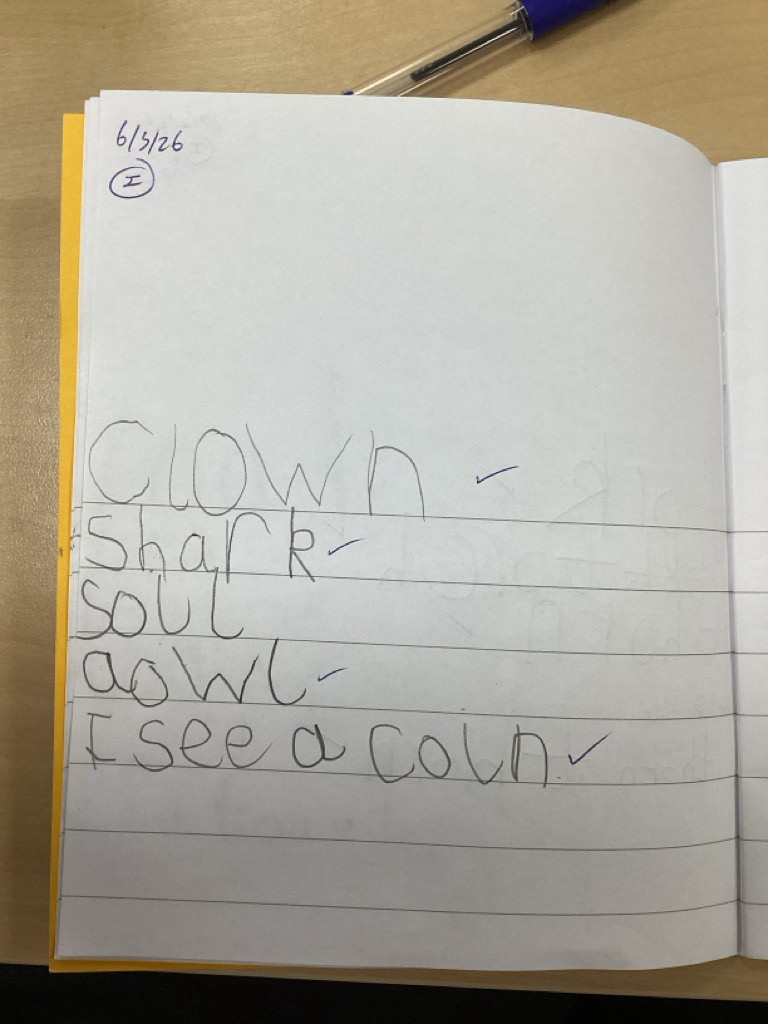 6/3/26
I
Clown ✓
Shark ✓
Soul
aowl ✓
I see a coln. ✓